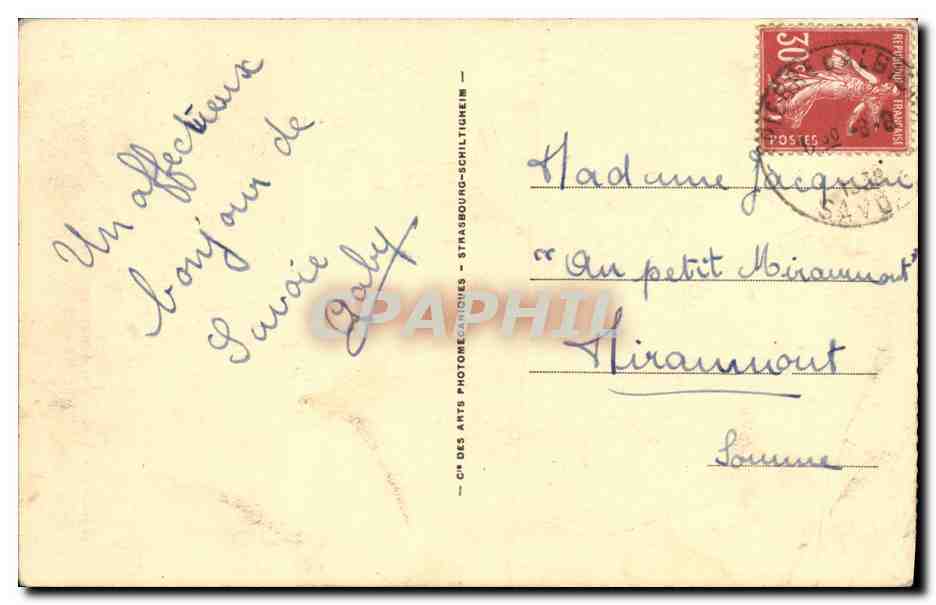 Un affectueux
bonjour de
Savoie
Gaby
CPAPHIL
— CIE DES ARTS PHOTOMECANIQUES - STRASBOURG-SCHILTIGHEIM —
30c
REPUBLIQUE FRANCAISE
POSTES
1938
SAVO
Madame Jacquin
"Au petit Miraumont"
Miraumont
Somme